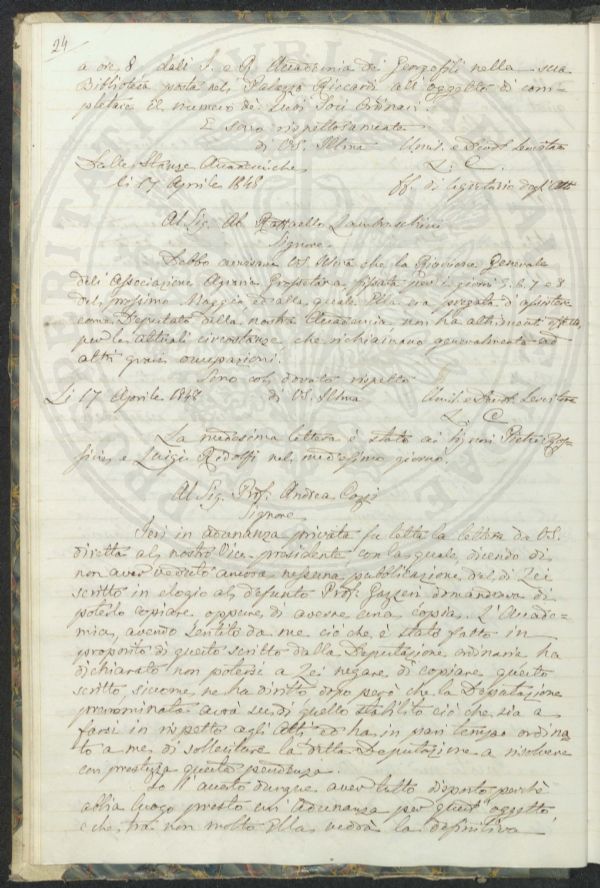 24
a ore 8 dall' I. e R. Accademia dei Georgofili nella sua
Biblioteca posta nel Palazzo Riccardi all' oggetto di com-
pletare il numero dei suoi Soci Ordinari.
E sono rispettosamente
di VS. Illma Umil. e Devot. Servitore
Dalle Stanze Accademiche L. C.
li 17 Aprile 1848 ff. di Segretario degli Atti
Al Sig. Ab. Raffaello Lambruschini
Signore
Debbo avvisare VS. Illma che la Riunione Generale
dell' Associazione Agraria Grossetana, fissata per i giorni 5. 6. 7 e 8
del prossimo Maggio ed alla quale Ella era pregata d' assistere
come Deputato della nostra Accademia non ha altrimenti
per le attuali circostanze che richiamano generalmente ad
altre gravi occupazioni.
Sono col dovuto rispetto
Li 17 Aprile 1848 di VS. Illma Umil. e Devot. Servitore
L. C.
La medesima lettera è stata ai Signori Pietro
e Luigi Ridolfi nel medesimo giorno
Al Sig. Prof. Andrea Cozzi
Signore
Ieri in adunanza privata fu letta la lettera da VS.
diretta al nostro Vice-presidente con la quale, dicendo di
non aver veduto ancora nessuna pubblicazione del di Lei
scritto in elogio al defunto Prof. Gazzeri domandava di
poterlo copiare oppure di averne una copia. L' Accade-
mia, avendo sentito da me ciò che è stato fatto in
proposito di questo scritto dalla Deputazione ordinaria ha
dichiarato non potersi a Lei negare di copiare questo
scritto, siccome ne ha diritto dopo però che la Deputazione
prenominata avrà su di quello stabilito ciò che sia a
farsi in rispetto agli Atti ed ha in pari tempo ordina-
to a me di sollecitare la detta Deputazione a risolvere
con prestezza questa pendenza.
Io l' avverto dunque aver tutto disposto perchè
abbia luogo presto un' adunanza per quest' oggetto
e che tra non molto Ella vedrà la definitiva